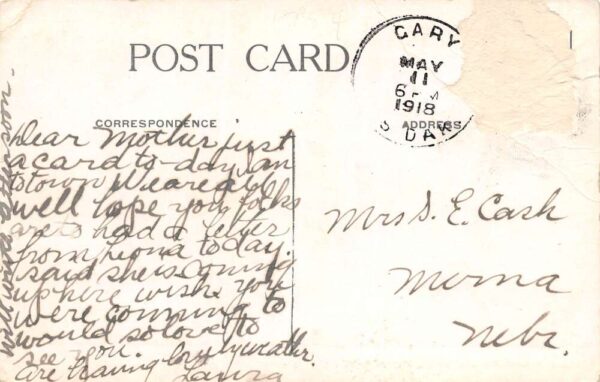 POST CARD
GARY
MAY
11
6
1918
S DAK
CORRESPONDENCE
ADDRESS
Dear Mother just
a card to-day am
to town We are all
well hope you folks
are to had a letter
from Leona to day.
said she is coming
up here wish you
were comming to
would so love to
see you.
are having lovely weather.
Laura
will write letter soon.
Mrs D. E. Cash
Merna
Nebr.